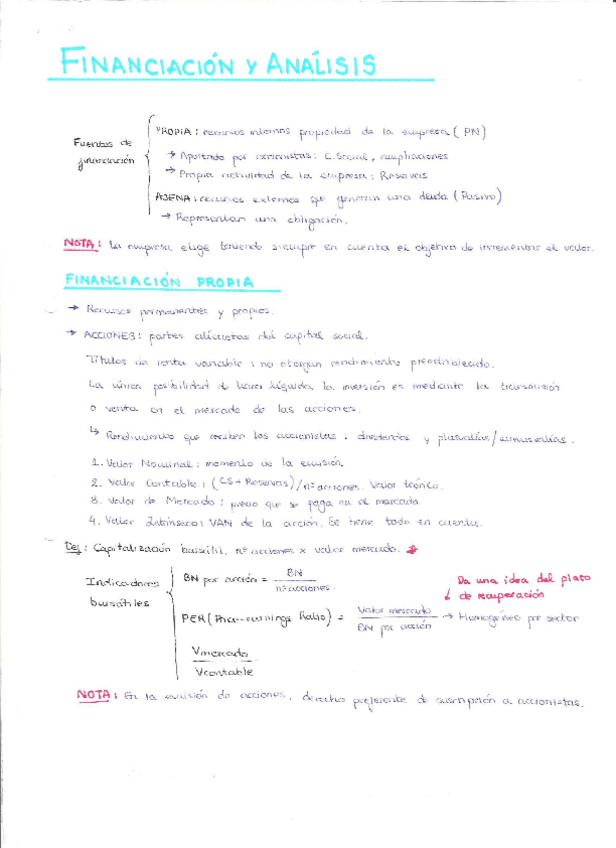 FINANCIACIÓN Y ANÁLISIS
Fuentes de financiación
PROPIA: recursos internos propiedad de la empresa (PN)
→ Aportado por accionistas: C.Social, ampliaciones
→ Propia actividad de la empresa: Reservas
AJENA: recursos externos que generan una deuda (Pasivo)
→ Representan una obligación.
NOTA: La empresa elige teniendo siempre en cuenta el objetivo de incrementar el valor.
FINANCIACIÓN PROPIA
→ Recursos permanentes y propios.
→ ACCIONES: partes alícuotas del capital social.
Títulos de renta variable: no otorgan rendimiento preestablecido.
La única posibilidad d hacer líquida la inversión es mediante la transmisión
o venta en el mercado de las acciones.
↳ Rendimientos que reciben los accionistas: dividendos y plusvalías/minusvalías.
1. Valor Nominal: momento de la emisión.
2. Valor Contable: (CS+Reservas)/nº acciones. Valor teórico.
3. Valor de Mercado: precio que se paga en el mercado.
4. Valor Intrínseco: VAN de la acción. Se tiene todo en cuenta.
Def: Capitalización bursátil, nº acciones x valor mercado.
Indicadores bursátiles
BN por acción = BN / nº acciones.
Da una idea del plazo
↓ de recuperación
PER (Price-earnings Ratio) = Valor mercado / BN por acción → Homogéneo por sector
Vmercado / Vcontable
NOTA: En la emisión de acciones, derecho preferente de suscripción a accionistas.